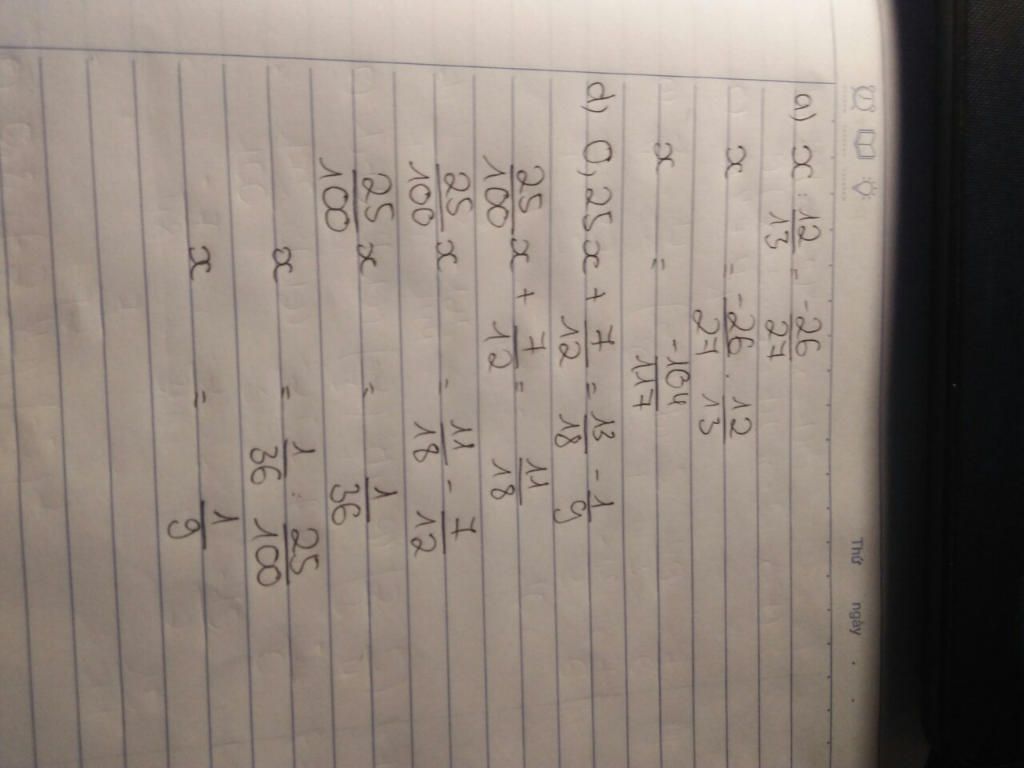 Thứ ngày
a) x : 12/13 = -26/27
x = -26/27 . 12/13
x = -104/117
d) 0,25x + 7/12 = 13/18 - 1/9
25/100 x + 7/12 = 11/18
25/100 x = 11/18 - 7/12
25/100 x = 1/36
x = 1/36 : 25/100
x = 1/9